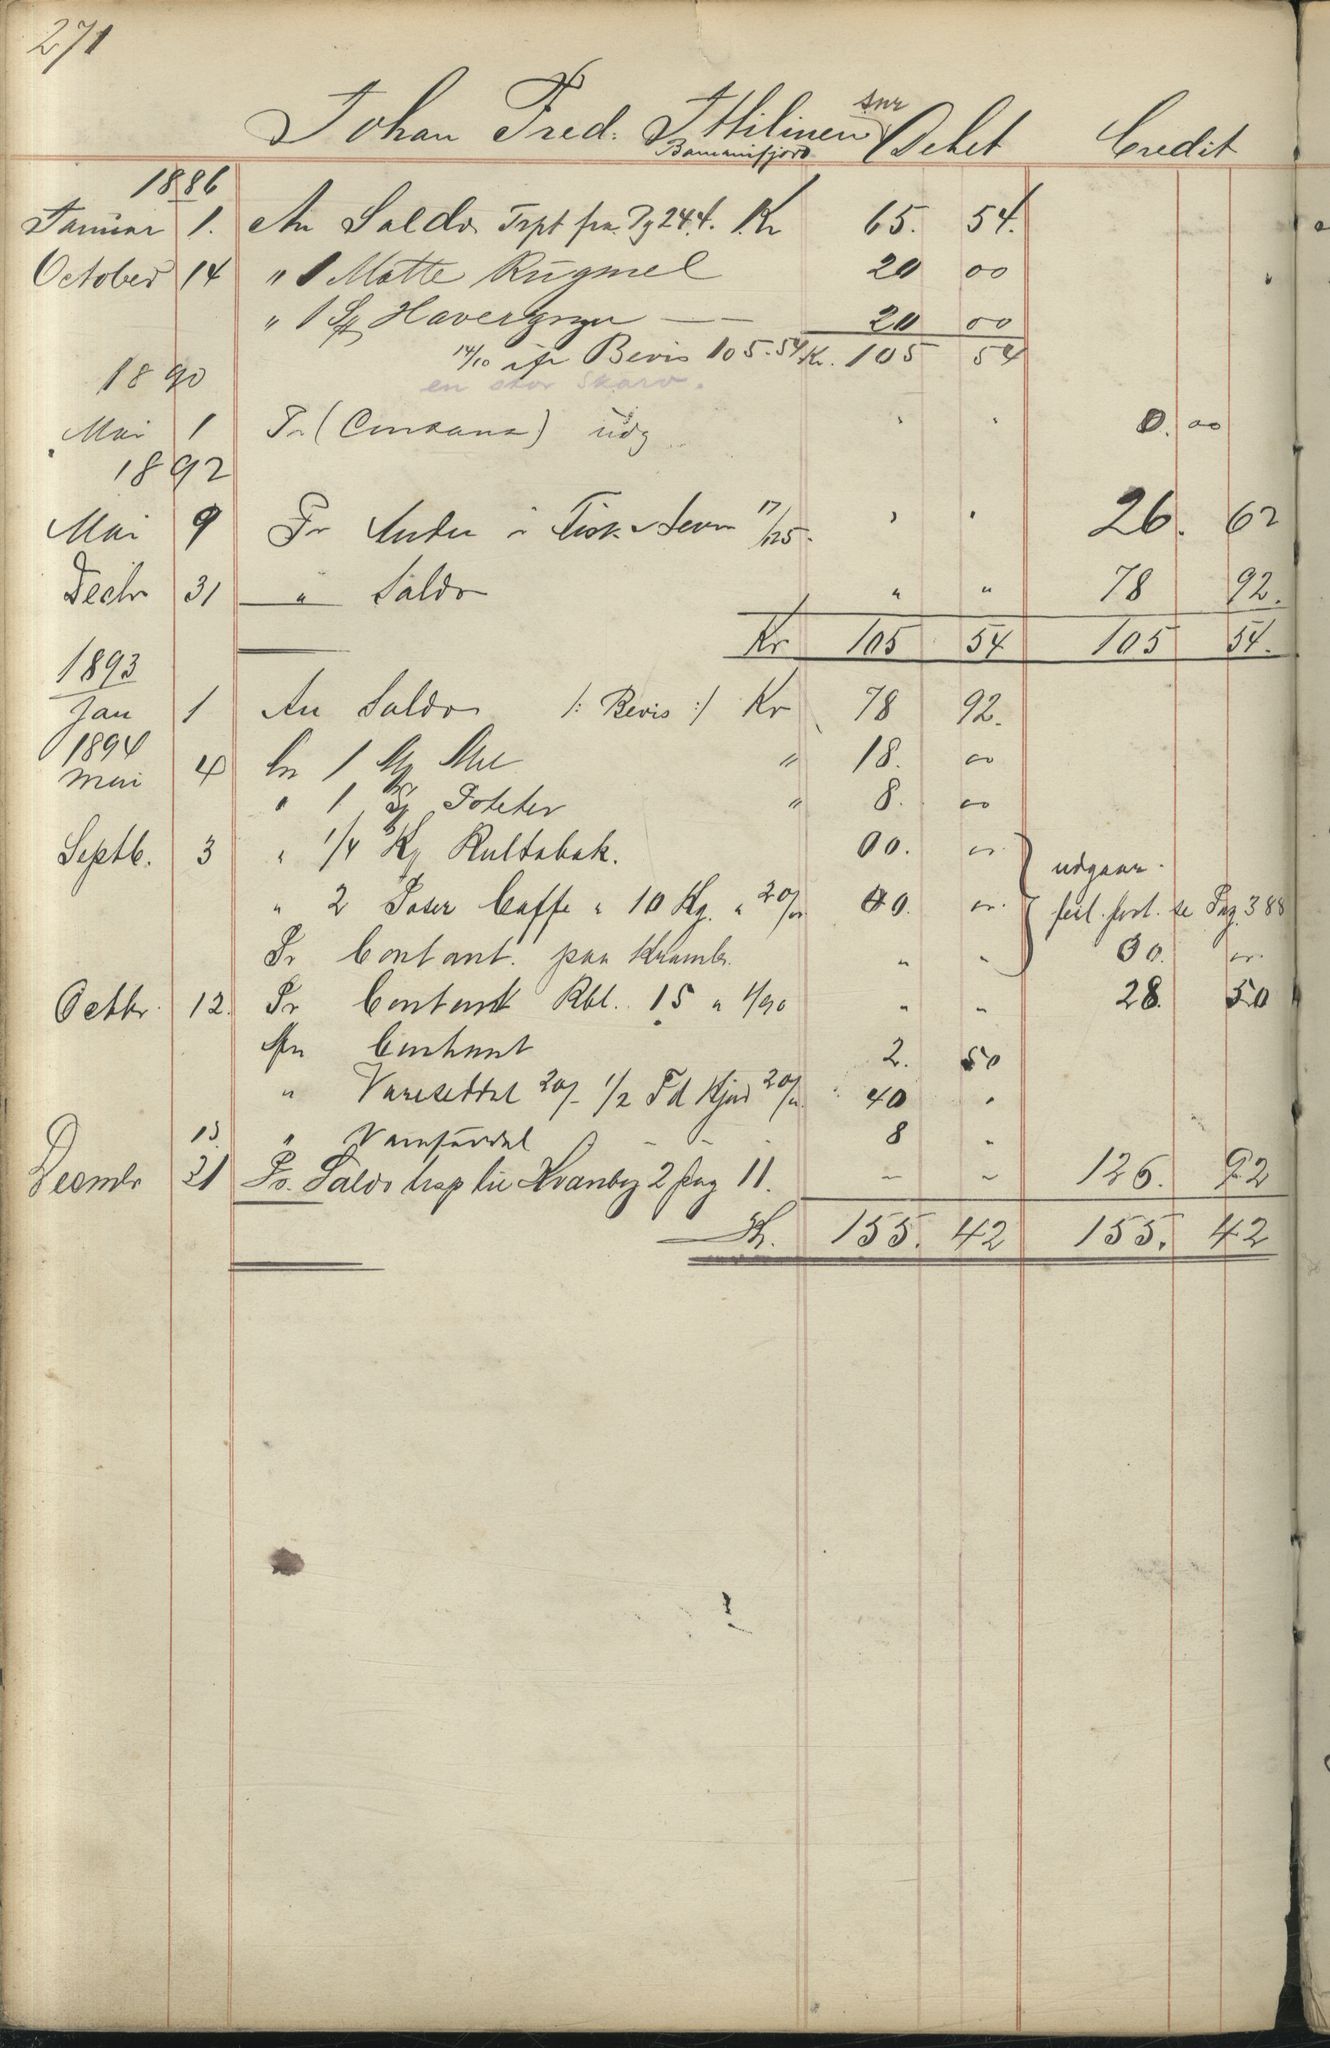 271
Johan Fred. Ittilinen snr Debet Credit
Bomanifjord
1886
Januar 1. An Saldo Trpt fra Pg 244. Kr 65. 54.
October 14 " 1 Matte Rugmel 20 00
" 1 Sk Havergryn — 20 00
14/10 Bevis 105.54 Kr. 105 54
en stor Skarv.
1890
Mai 1 Pr (Contant) udg " " 0.00
1892
Mai 9 Pr Andel i Fisk 17/125. " " 26. 62
Decbr 31 " Saldo " " 78 92.
Kr 105 54 105 54.
1893
Jan 1 An Saldo /: Bevis :/ Kr 78 92.
1894
Mai 4 An 1 Mel " 18. 00
" 1 Sk Poteter " 8. 00
Septb. 3 " 1/4 Kg Rultabak. 00. 00 udgaar.
" 2 Poser Caffe " 10 Kg. " 20/00 00. 00. feil ført. se Pag 388
Pr Contant. paa Krambr. " " 00. 00.
Octbr. 12. Pr Contant Rbl. 15 " 1/90 " " 28. 50
An Contant 2. 50
" Vareseddel 20/- 1/2 Fd Kjød 20/" 40 "
13. " Vareseddel - - - 8 "
Decmbr 31 Pr. Saldo trsp til Kvanby 2 pag 11. " " 126. 92
Kr. 155. 42 155. 42